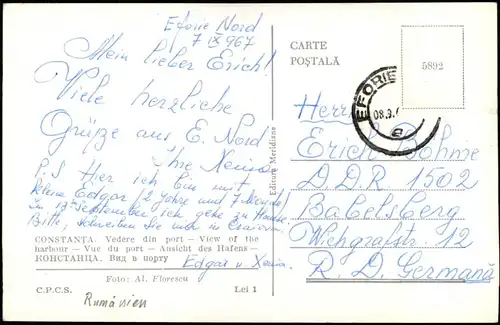 Eforie Nord
7 IX 967
Mein lieber Erich!
Viele herzliche
Grüze aus E. Nord
Ihre Xenia
P.S Hier ich bin mit
kleine Edgar (2 Jahre und 7 Monate)
In 13-September ich gehe zu Hause.
Bitte, schreiben Sie mir in Craiova.
CONSTANȚA. Vedere din port — View of the
harbour — Vue du port — Ansicht des Hafens —
КОНСТАНЦА. Вид в порту
Edgar u. Xenia
Foto: Al. Florescu
C.P.C.S.
Lei 1
Rumänien
Editura Meridiane
CARTE
POȘTALĂ
5892
EFORIE
08.9.
a
Herrn
Erich Böhme
D D R 1502
Babelsberg
Wichgrafstr. 12
R. D. Germană